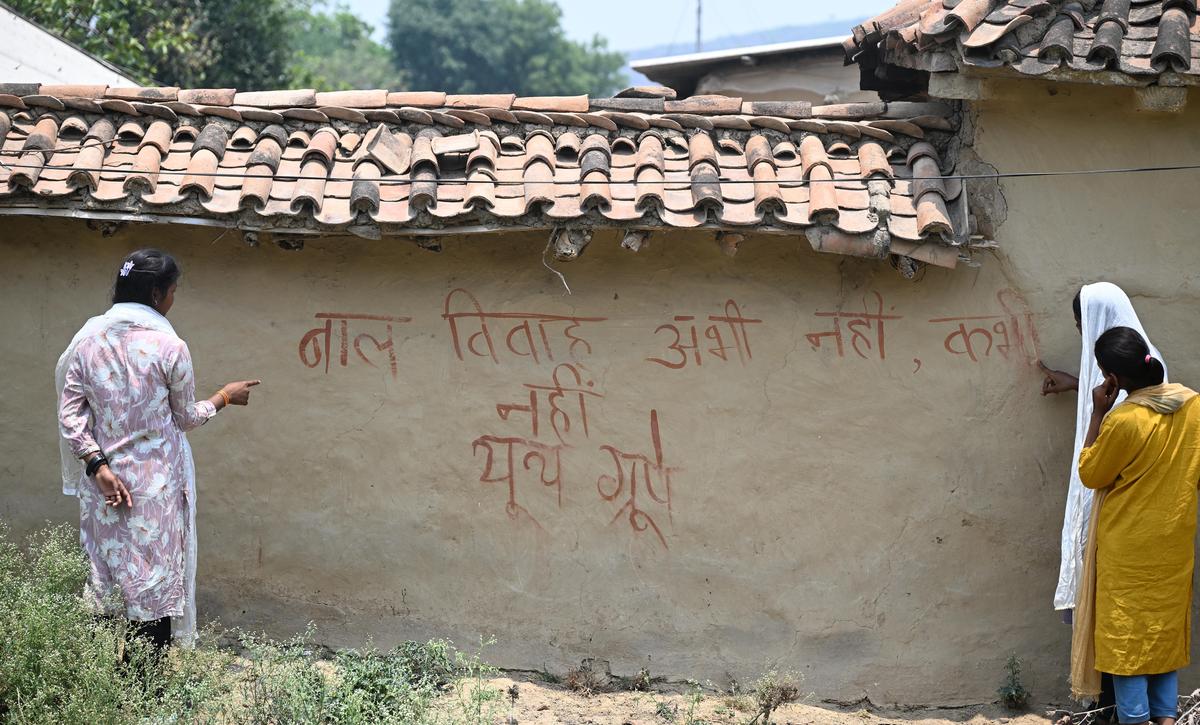 बाल विवाह अभी नहीं, कभी
नहीं
यूथ ग्रूप